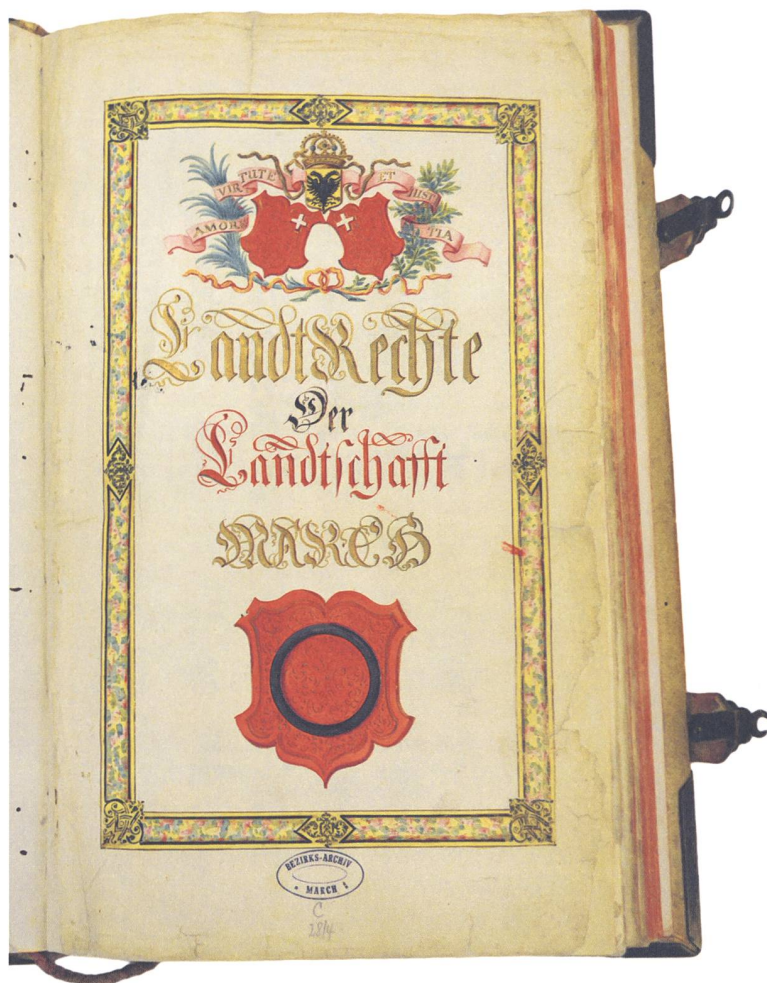 AMORE VIRTUTE ET IUSTITIA
LandtRechte
Der
Landtschafft
MARCH
BEZIRKS-ARCHIV
MARCH
C
28/4